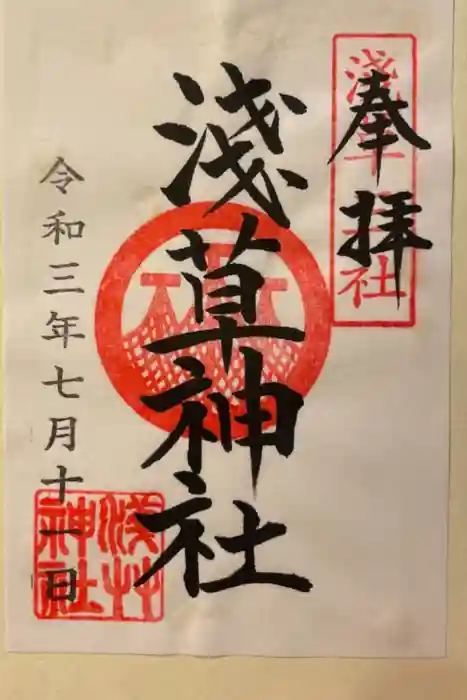 奉拝
淺草神社
淺草神社
令和三年七月十一日
淺草
神社